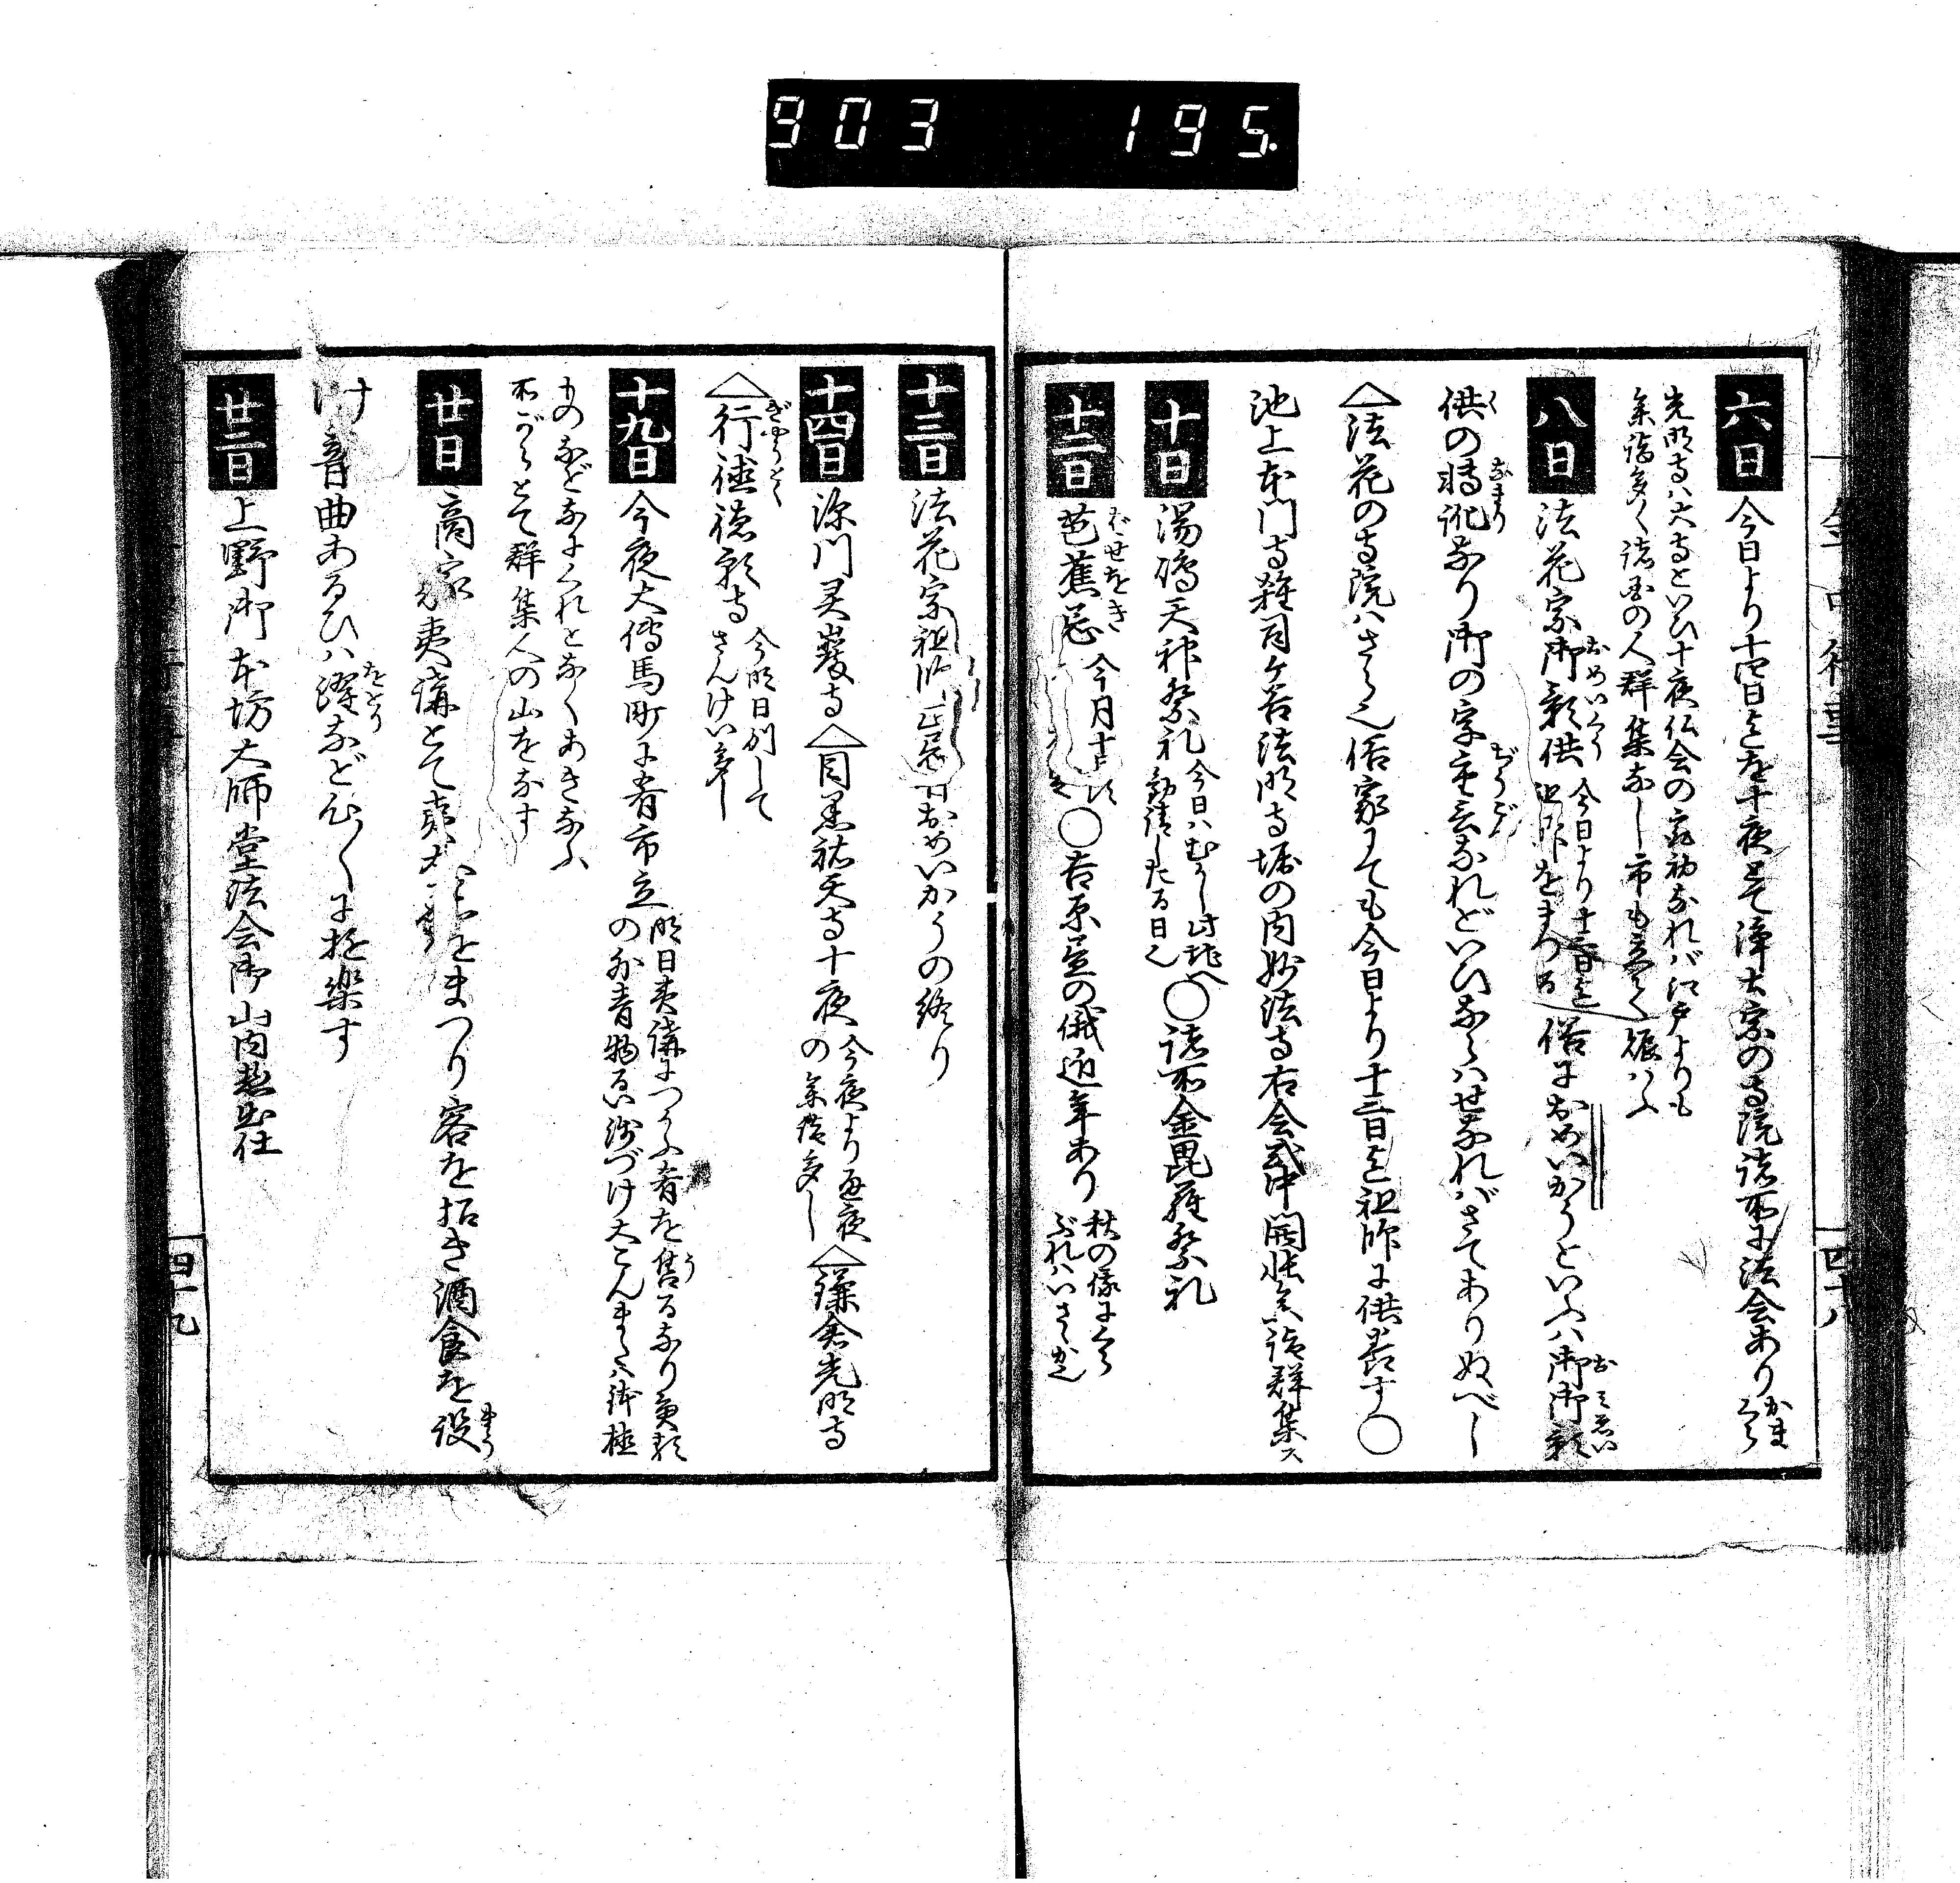 903 195.
六日 今日より十四日まて を十夜とて浄土宗の寺院諸所に法会あり かまくら
光明寺ハ大寺といひ十夜仏会の最初なれバ江戸よりも
参詣多く諸国の人群集なし市も立て賑ハふ
八日 法花宗御影供 今日より十三日まて
祖師をまつる 俗におめいかうといふハ御御影
供の時訛なり御の字重言なれどいひならハせなれバさてありぬべし
△法花の寺院ハさら也俗家にても今日より十三日まて祖師に供養す〇
池上本門寺雑司ケ谷法明寺堀の内妙法寺右会式中開帳参詣群集ス
十日 湯嶋天神祭礼 今日ハむかし此地へ
勧請したる日也 〇諸所金毘羅祭礼
十二日 芭蕉忌 今月十二 〇吉原 の俄近年あり 秋の俄にくら
ぶれハいさゝか也
十三日 法花宗祖師 おめいかうの終り
十四日 深川霊巌寺△目黒祐天寺十夜 今夜より通夜
の参詣多し △鎌倉光明寺
△行徳徳願寺 今明日別して
さんけい多し
十九日 今夜大傳馬町に肴市立 明日夷講につかふ肴を售るなり魚類
の外青物るい浅づけ大こんまた ハ鉢植
ものなどなにくれとなくあきなふ
所がらとて群集人の山をなす
廿日 商家夷講とて をまつり客を招き酒食を設
け音曲あるひハ躍などひらくに遊楽す
廿二日 上野御本坊大師堂法会御山内惣出仕
四十八
四十九